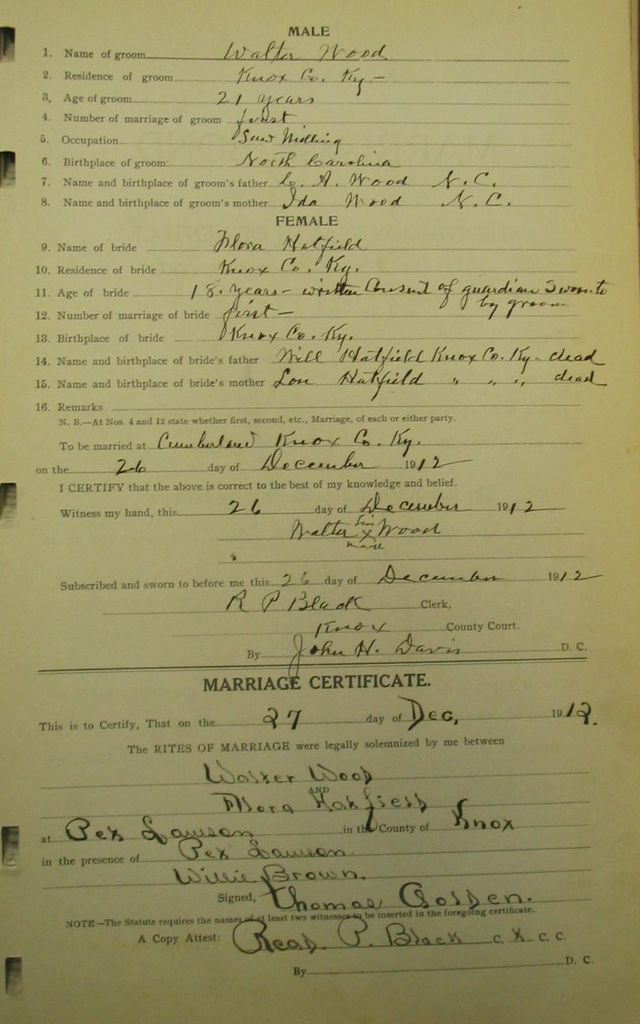 MALE
1. Name of groom Walter Wood
2. Residence of groom Knox Co. Ky -
3. Age of groom 21 years
4. Number of marriage of groom first
5. Occupation Saw Milling
6. Birthplace of groom North Carolina
7. Name and birthplace of groom's father L. A. Wood N. C.
8. Name and birthplace of groom's mother Ida Wood N. C.
FEMALE
9. Name of bride Flora Hatfield
10. Residence of bride Knox Co. Ky.
11. Age of bride 18. years - written Consent of guardian Sworn to
by groom
12. Number of marriage of bride first -
13. Birthplace of bride Knox Co. Ky.
14. Name and birthplace of bride's father Will Hatfield Knox Co. Ky - dead
15. Name and birthplace of bride's mother Lou Hatfield " " " dead
16. Remarks
N. B.—At Nos. 4 and 12 state whether first, second, etc., Marriage, of each or either party.
To be married at Cumberland Knox Co. Ky.
on the 26 day of December 1912
I CERTIFY that the above is correct to the best of my knowledge and belief.
Witness my hand, this 26 day of December 1912
Walter his X mark Wood
Subscribed and sworn to before me this 26 day of December 1912
R P Black Clerk,
Knox County Court.
By John H. Davis D. C.
MARRIAGE CERTIFICATE.
This is to Certify, That on the 27 day of Dec, 1912.
The RITES OF MARRIAGE were legally solemnized by me between
Walter Wood
AND
Flora Hatfield
at Pex Lawson in the County of Knox
in the presence of Pex Lawson
Willie Brown.
Signed, Thomas Golden.
NOTE—The Statute requires the names of at least two witnesses to be inserted in the foregoing certificate.
A Copy Attest: Read P. Black C. K. C. C.
By D. C.